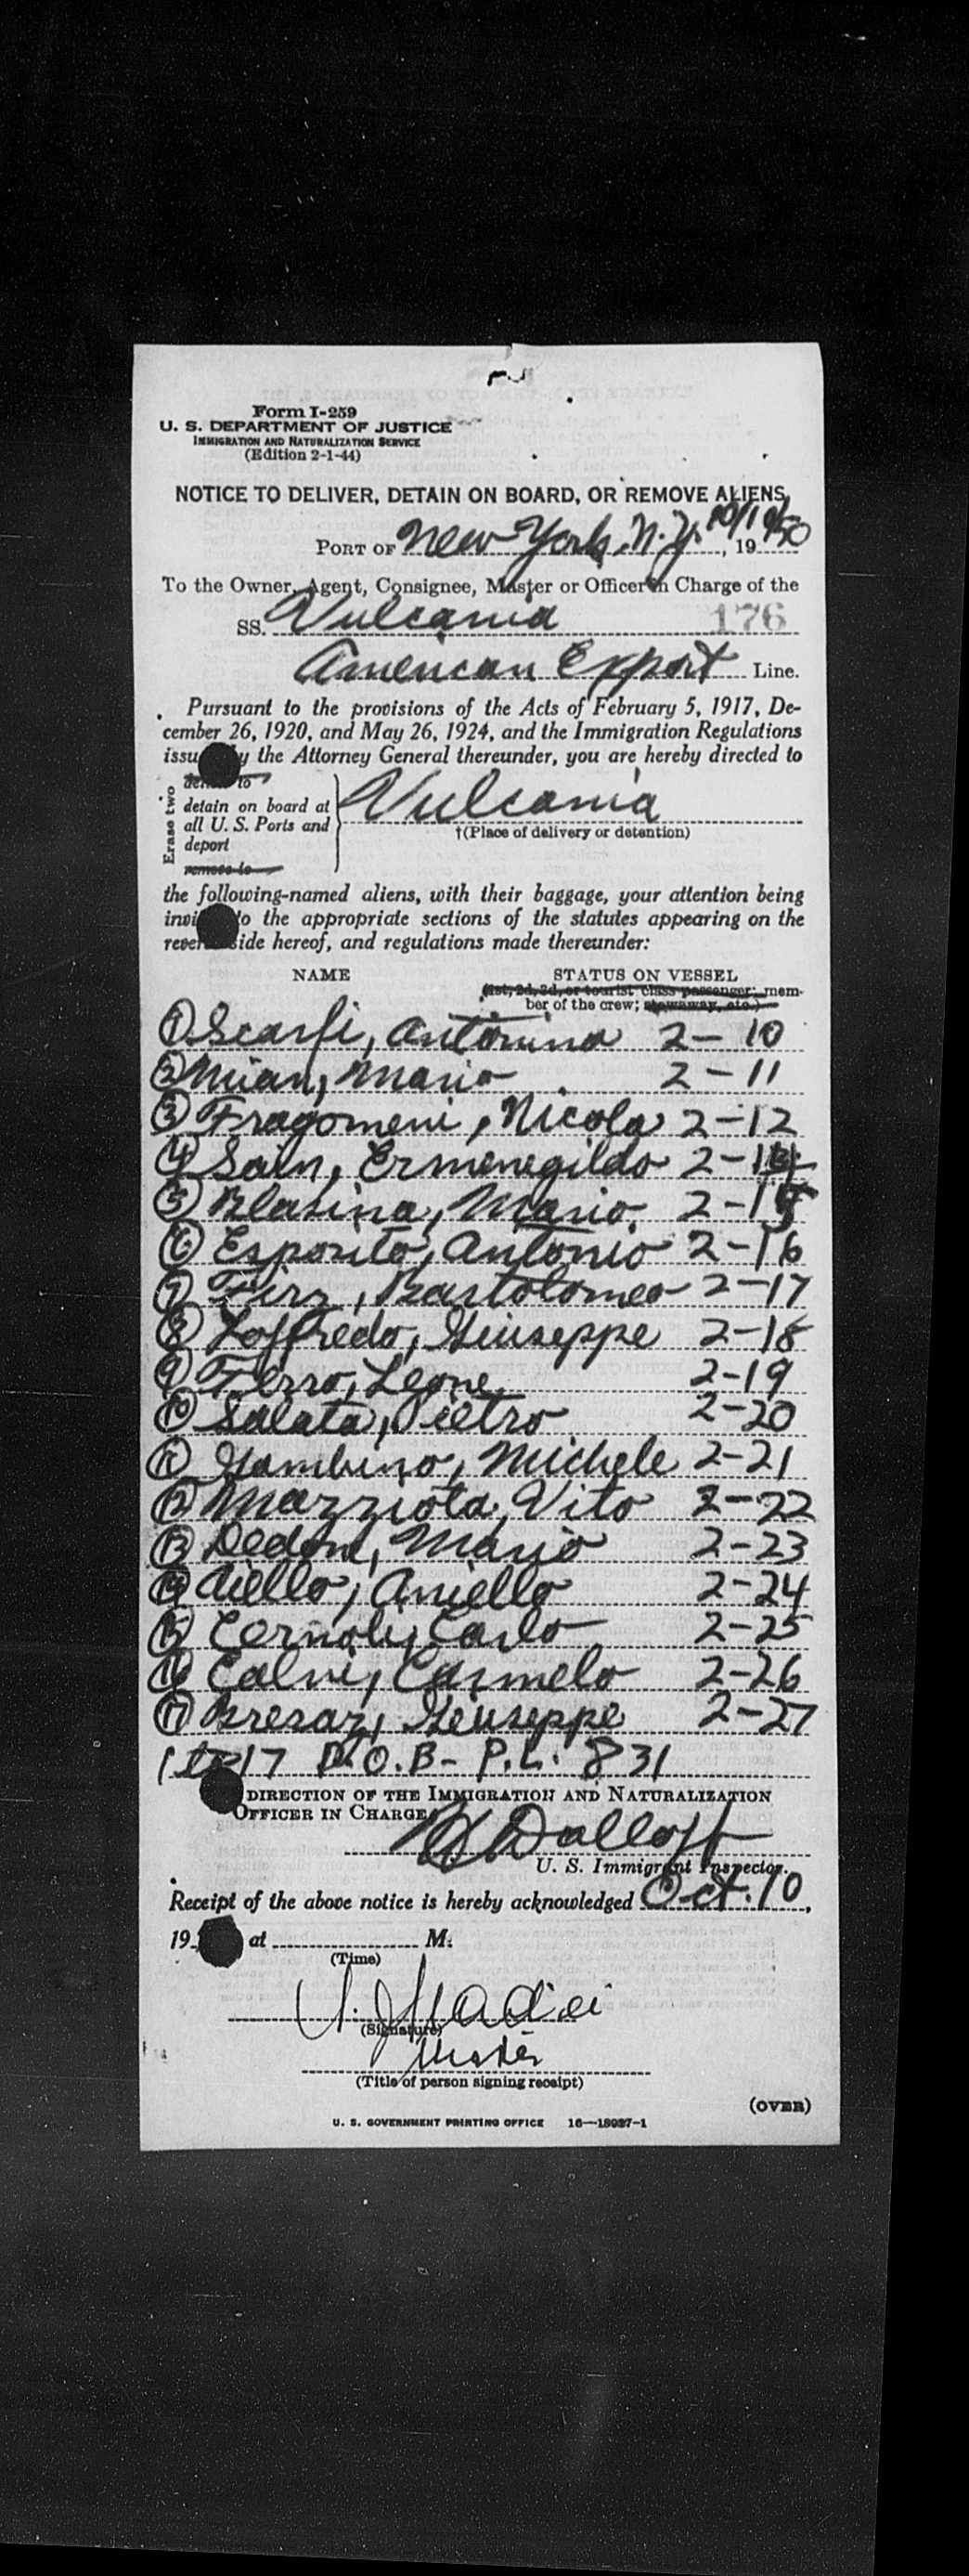 Form I-259
U. S. DEPARTMENT OF JUSTICE
IMMIGRATION AND NATURALIZATION SERVICE
(Edition 2-1-44)
NOTICE TO DELIVER, DETAIN ON BOARD, OR REMOVE ALIENS
PORT OF New York, N.Y. 10/10/50, 19
To the Owner, Agent, Consignee, Master or Officer in Charge of the
SS. Vulcania 176
American Export Line.
Pursuant to the provisions of the Acts of February 5, 1917, De-
cember 26, 1920, and May 26, 1924, and the Immigration Regulations
issu y the Attorney General thereunder, you are hereby directed to
Erase two
detain on board at
all U. S. Ports and
deport
remove to
Vulcania
†(Place of delivery or detention)
the following-named aliens, with their baggage, your attention being
invi to the appropriate sections of the statutes appearing on the
rever side hereof, and regulations made thereunder:
NAME STATUS ON VESSEL
(1st, 2d, 3d, or tourist class passenger; mem-
ber of the crew; stowaway, etc.)
① Scarfi, Antonino 2-10
② Mian, Mario 2-11
③ Fragomeni, Nicola 2-12
④ Sain, Ermenegildo 2-14
⑤ Blasina, Mario 2-15
⑥ Esposito, Antonio 2-16
⑦ Bartolomeo 2-17
⑧ Loffredo, Giuseppe 2-18
⑨ Ferro, Leone 2-19
⑩ Salata, Pietro 2-20
⑪ Gambino, Michele 2-21
⑫ Mazziota, Vito 2-22
⑬ Mario 2-23
⑭ Aiello, Aniello 2-24
⑮ Carlo 2-25
⑯ Calvi, Carmelo 2-26
⑰ Bresaz, Giuseppe 2-27
1 to 17 D.O.B- P.L. 831
DIRECTION OF THE IMMIGRATION AND NATURALIZATION
OFFICER IN CHARGE
Dalloff
U. S. Immigrant Inspector.
Receipt of the above notice is hereby acknowledged Oct. 10,
19 at M.
(Time)
(Signature)
Master
(Title of person signing receipt)
(OVER)
U. S. GOVERNMENT PRINTING OFFICE 16—18027-1